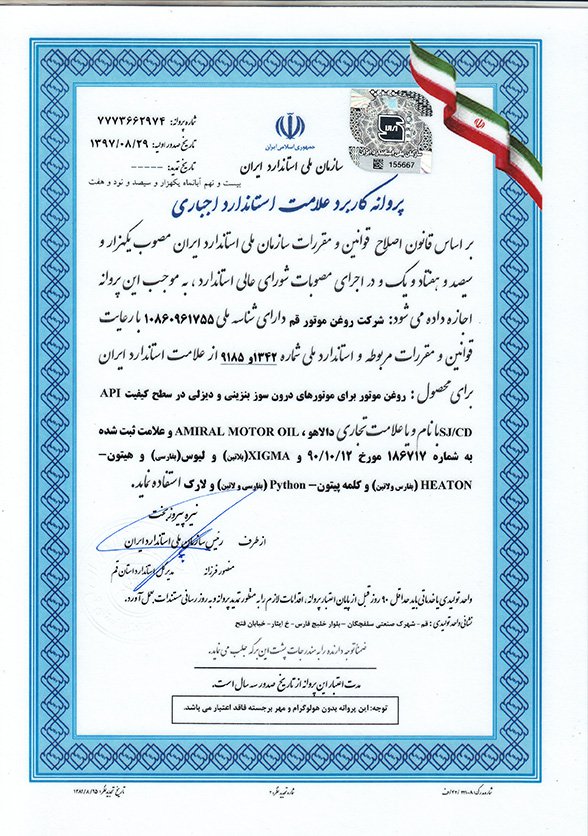 شماره پروانه: ۷۷۷۳۶۶۲۹۷۴
تاریخ صدور اولیه: ۱۳۹۷/۰۸/۲۹
تاریخ تمدید: -----
جمهوری اسلامی ایران
سازمان ملی استاندارد ایران
155667
بیست و نهم آبانماه یکهزار و سیصد و نود و هفت
پروانه کاربرد علامت استاندارد اجباری
بر اساس قانون اصلاح قوانین و مقررات سازمان ملی استاندارد ایران مصوب یکهزار و
سیصد و هفتاد و یک و در اجرای مصوبات شورای عالی استاندارد ، به موجب این پروانه
اجازه داده می شود: شرکت روغن موتور قم دارای شناسه ملی ۱۰۸۶۰۹۶۱۷۵۵ با رعایت
قوانین و مقررات مربوطه و استاندارد ملی شماره ۱۳۴۲و ۹۱۸۵ از علامت استاندارد ایران
برای محصول : روغن موتور برای موتورهای درون سوز بنزینی و دیزلی در سطح کیفیت API
SJ/CD با نام و یا علامت تجاری دالاهو ، AMIRAL MOTOR OIL و علامت ثبت شده
به شماره ۱۸۶۷۱۷ مورخ ۹۰/۱۰/۱۲ و XIGMA(بلاتین) و لیوس(بفارسی) و هیتون-
HEATON (بفارسی ولاتین) و کلمه پیتون- Python (بفارسی و لاتین) و لارک استفاده نماید.
نیره پیروزبخت
رئیس سازمان ملی استاندارد ایران
از طرف
منصور فرزانه
مدیر کل استاندارد استان قم
واحد تولیدی یا خدماتی باید حداقل ۹۰ روز قبل از پایان اعتبار پروانه ، اقدامات لازم را به منظور تمدید پروانه و به روز رسانی مستندات بعمل آورد.
نشانی واحد تولیدی : قم - شهرک صنعتی سلفچگان - بلوار خلیج فارس - خ ایثار - خیابان فتح
ضمنا توجه دارنده را به مندرجات پشت این برگه جلب می نماید.
مدت اعتبار این پروانه از تاریخ صدور سه سال است.
توجه: این پروانه بدون هولوگرام و مهر برجسته فاقد اعتبار می باشد.